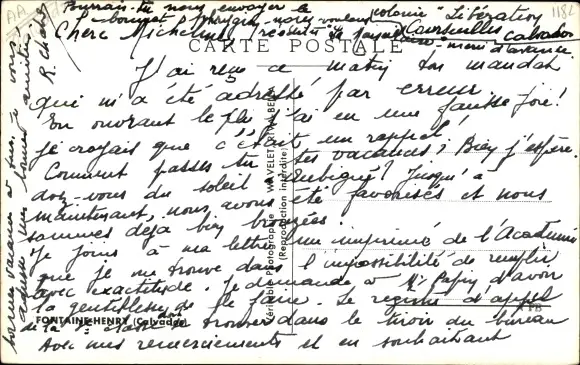 Pourrais-tu nous envoyer le
colonie "Libération
Courseulles Calvados
merci d'avance.
CARTE POSTALE
Chère Micheline,
J'ai reçu ce matin ton mandat
qui m'a été adressé par erreur.
En ouvrant le pli j'ai eu une fausse joie!
Je croyais que c'était un rappel!
Comment passes tu tes vacances? Bien j'espère.
Avez-vous du soleil à Aubigné? Jusqu'à
maintenant, nous avons été favorisés et nous
sommes déjà bien bronzées.
Je joins à ma lettre un imprimé de l'Académie
que je me trouve dans l'impossibilité de remplir
avec exactitude. Je demande à Mr Papin d'avoir
la gentillesse de le faire. Le registre d'appel
de la classe doit se trouver dans le tiroir du bureau
Avec mes remerciements et en souhaitant
bonnes vacances à tous, je vous
adresse mes bonnes amitiés
R. Chabe
FONTAINE-HENRY (Calvados)
Véritable photographie WAVELET-RIVA-BELLA
(Reproduction interdite)
1182
AA